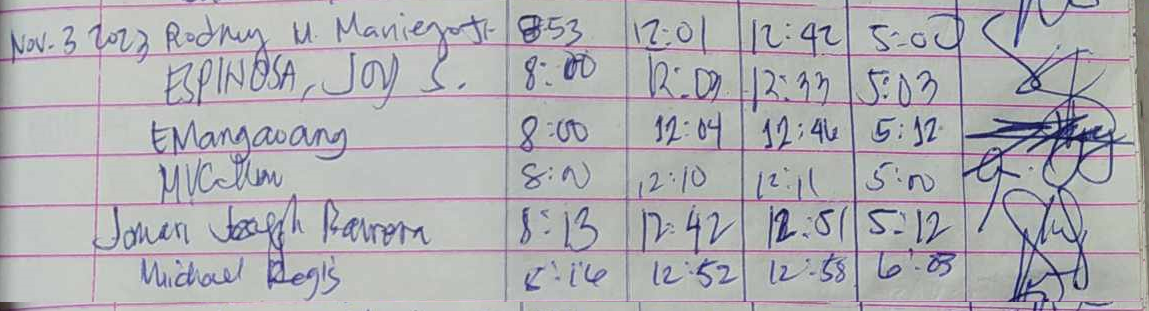 Nov. 3 2023 Rodney M. Maniego Jr. 8:53 12:01 12:42 5:00
ESPINOSA, JOY S. 8:00 12:09 12:33 5:03
EMangawang 8:00 12:04 12:46 5:12
8:00 12:10 12:11 5:00
Jomari Joseph Barrera 8:13 12:42 12:51 5:12
Michael Regis 12:52 12:58 6:03